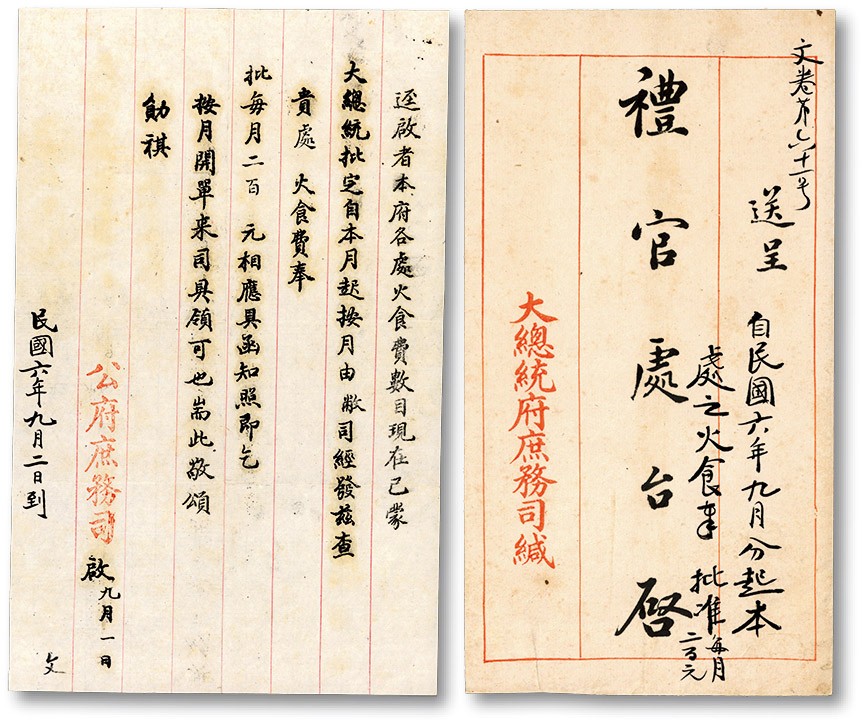 文卷第六十一号
送呈
自民國六年九月分起本
處之火食事 批准每月
二百元
禮官處台啓
大總統府庶務司緘
逕啟者本府各處火食費數目現在已蒙
大總統批定自本月起按月由敝司經發茲查
貴處 火食費奉
批每月二百 元相應具函知照即乞
按月開單來司具領可也耑此敬頌
勛祺
公府庶務司 啟 九月一日
民國六年九月二日到
文